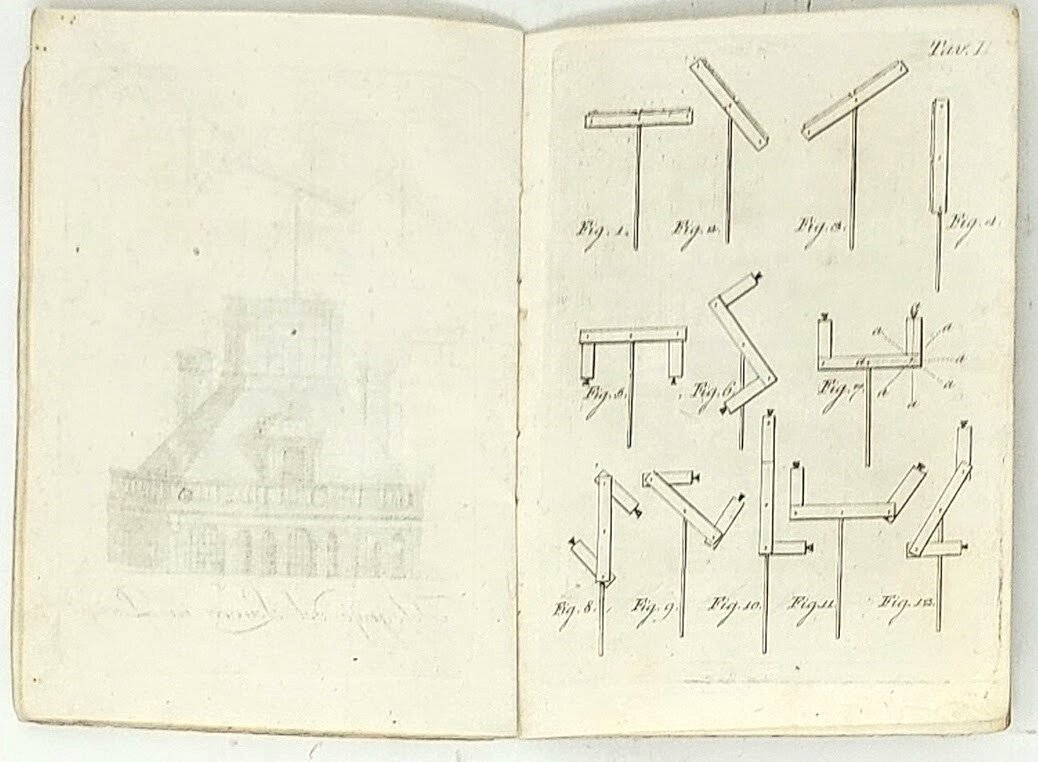 Tav. I.
Fig. 1.
Fig. 2.
Fig. 3.
Fig. 4.
Fig. 5.
Fig. 6.
Fig. 7.
a
a
a
d
a
a
a
Fig. 8.
Fig. 9.
Fig. 10.
Fig. 11.
Fig. 12.